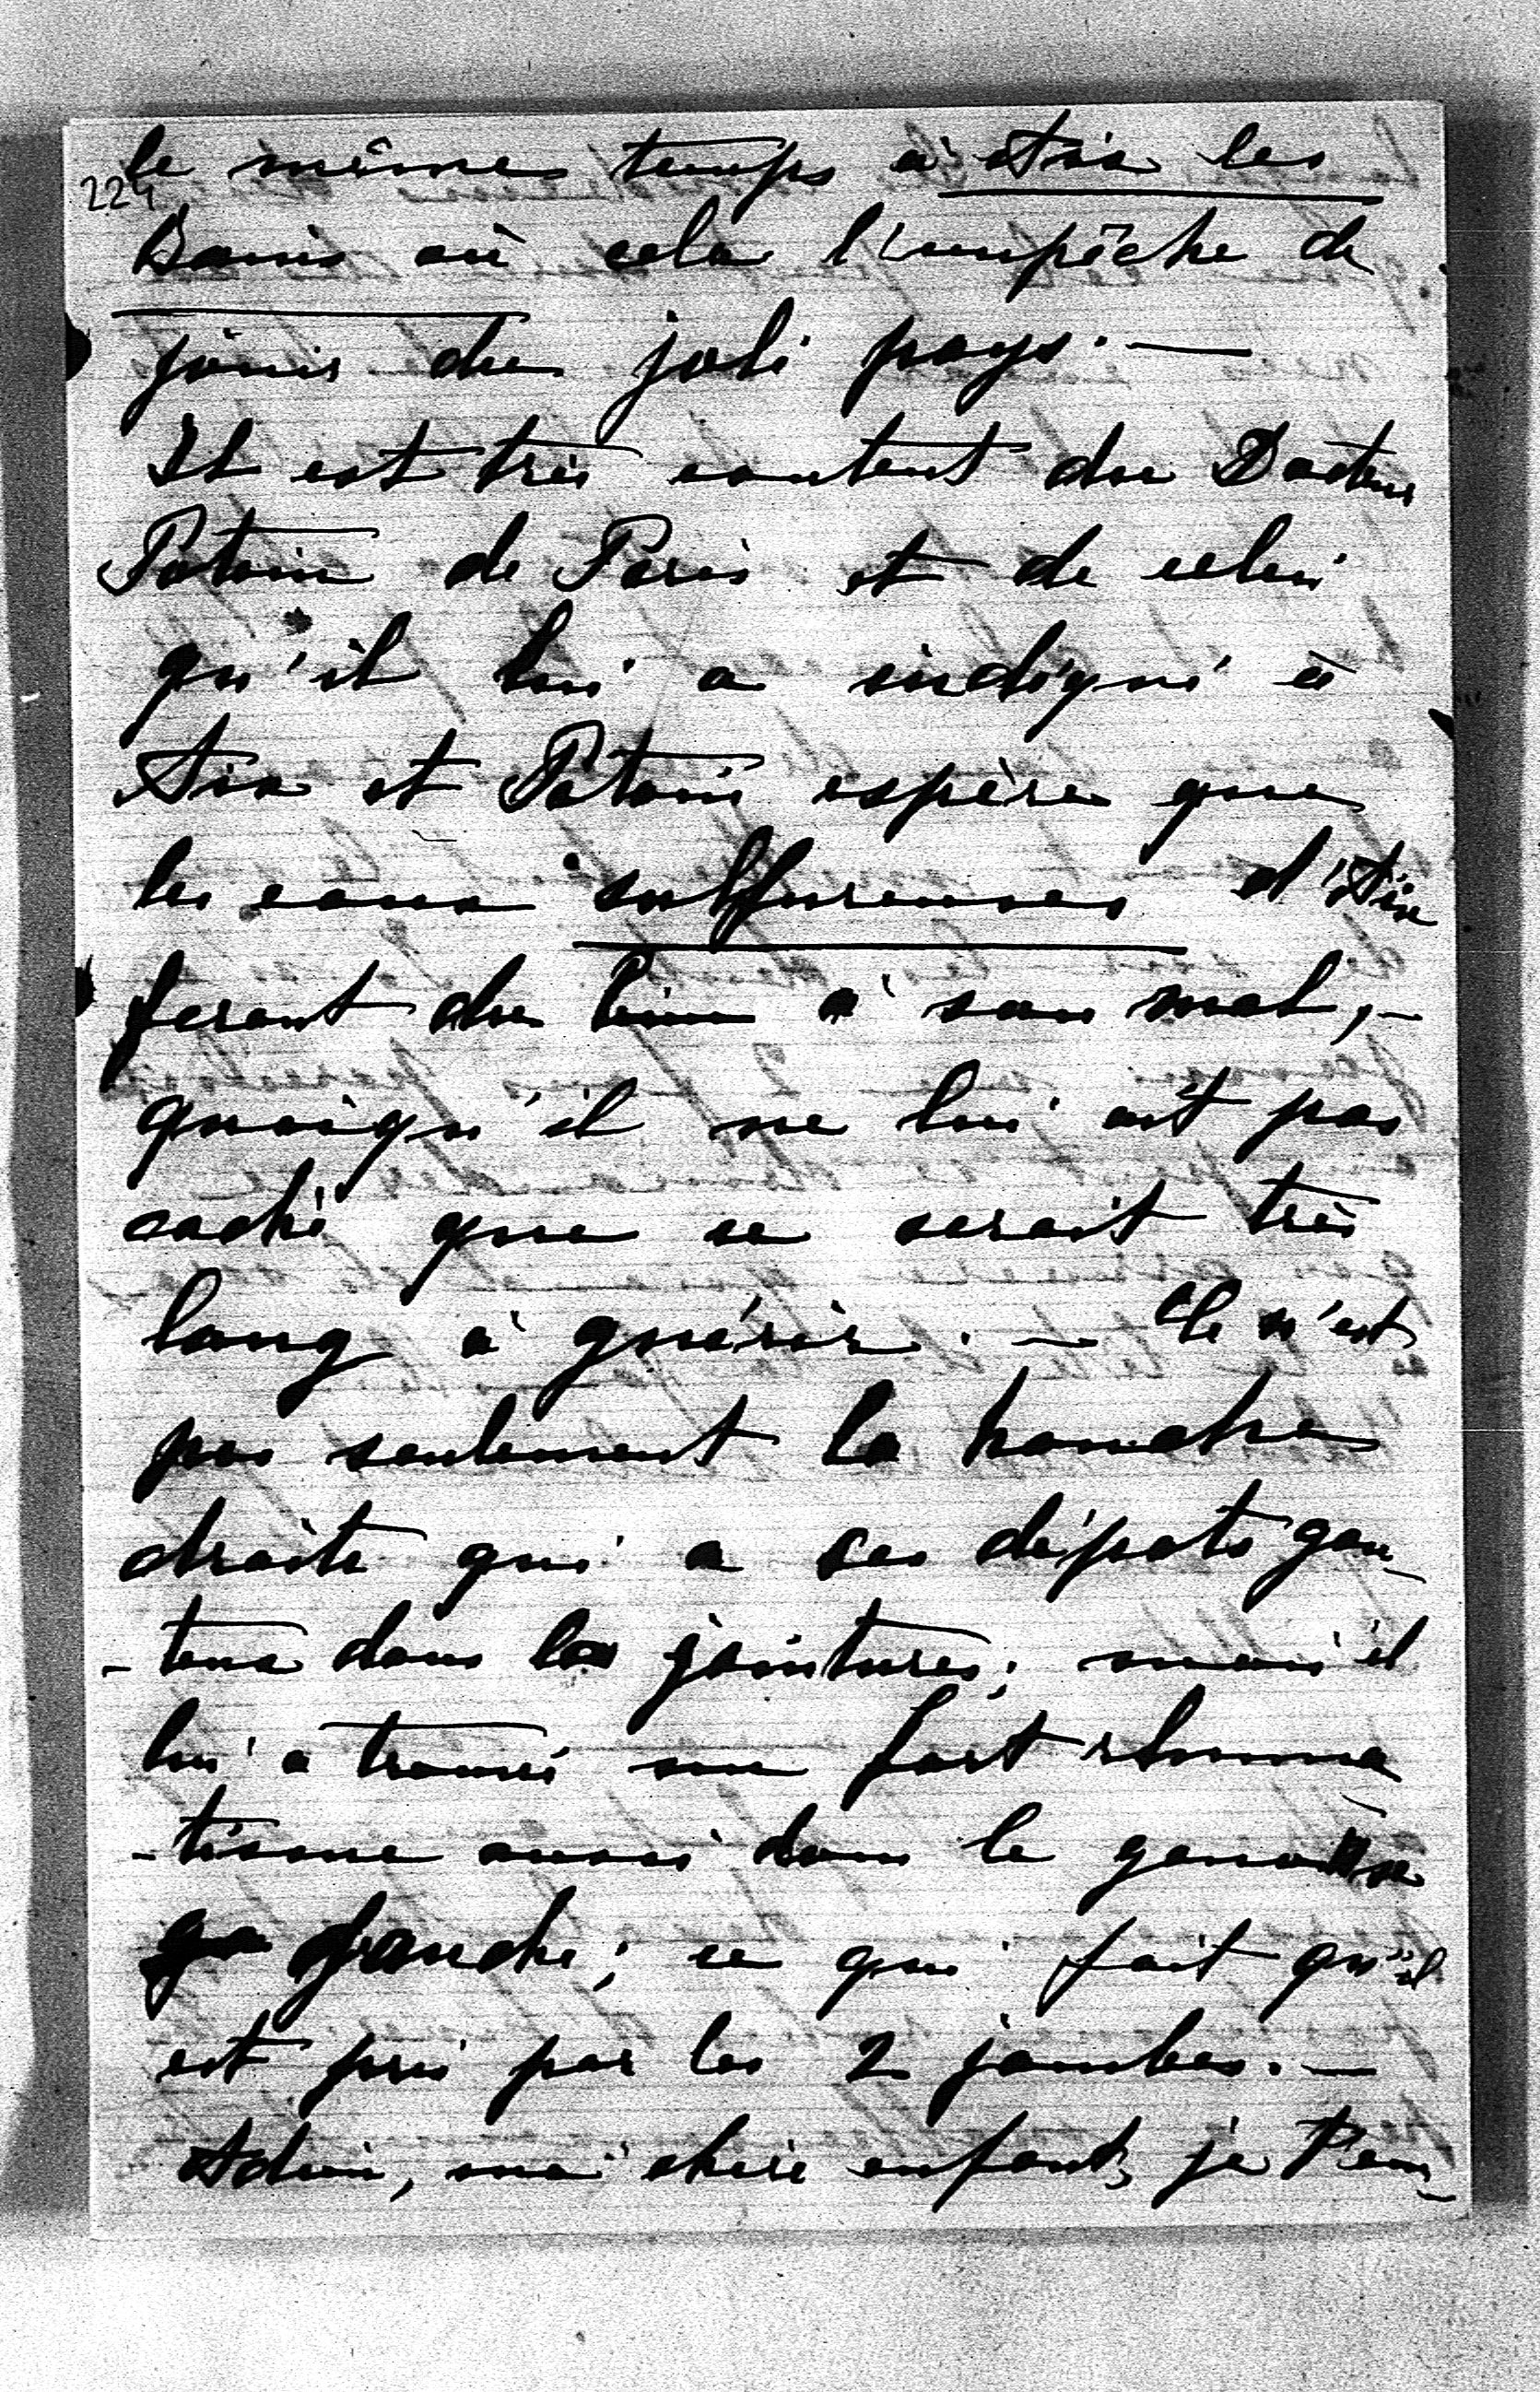 224
le même temps à Aix les
Bains où cela l'empêche de
jouir du joli pays. —
Il est très content du Docteur
Potain de Paris et de celui
qu'il lui a indiqué à
Aix et Potain espère que
les eaux sulfureuses d'Aix
feront du bien à son mal, -
quoiqu'il ne lui ait pas
caché que ce serait très
long à guérir. — Ce n'est
pas seulement la hanche
droite qui a ces dépots gou-
-teux dans les jointures; mais il
lui a trouvé un fort rhuma
-tisme aussi dans le genou
gauche; ce qui fait qu'il
est pris par les 2 jambes. —
Adieu, ma chère enfant, je t'em-